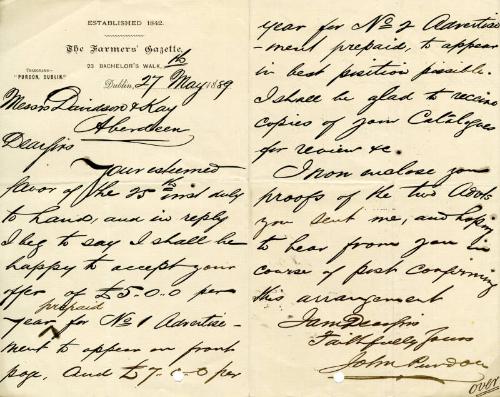 ESTABLISHED 1842.
The Farmers' Gazette,
23 BACHELOR'S WALK,
TELEGRAMS—
"PURDON, DUBLIN."
Dublin, 27th May 1889
Messrs Davidson & Kay
Aberdeen
Dear Sirs
Your esteemed
favor of the 25th inst duly
to hand, and in reply
I beg to say I shall be
happy to accept your
offer of £5.0.0 per
year prepaid for No 1 Advertise-
ment to appear on front
page, and £7-0-0 per
year for No 2 Advertise
-ment prepaid, to appear
in best position possible.
I shall be glad to receive
copies of your Catalogues
for review &c.
I now enclose you
proofs of the two Advts
you sent me, and hoping
to hear from you in
course of post confirming
this arrangement
I am Dear Sirs
Faithfully Yours
John Purdon
over